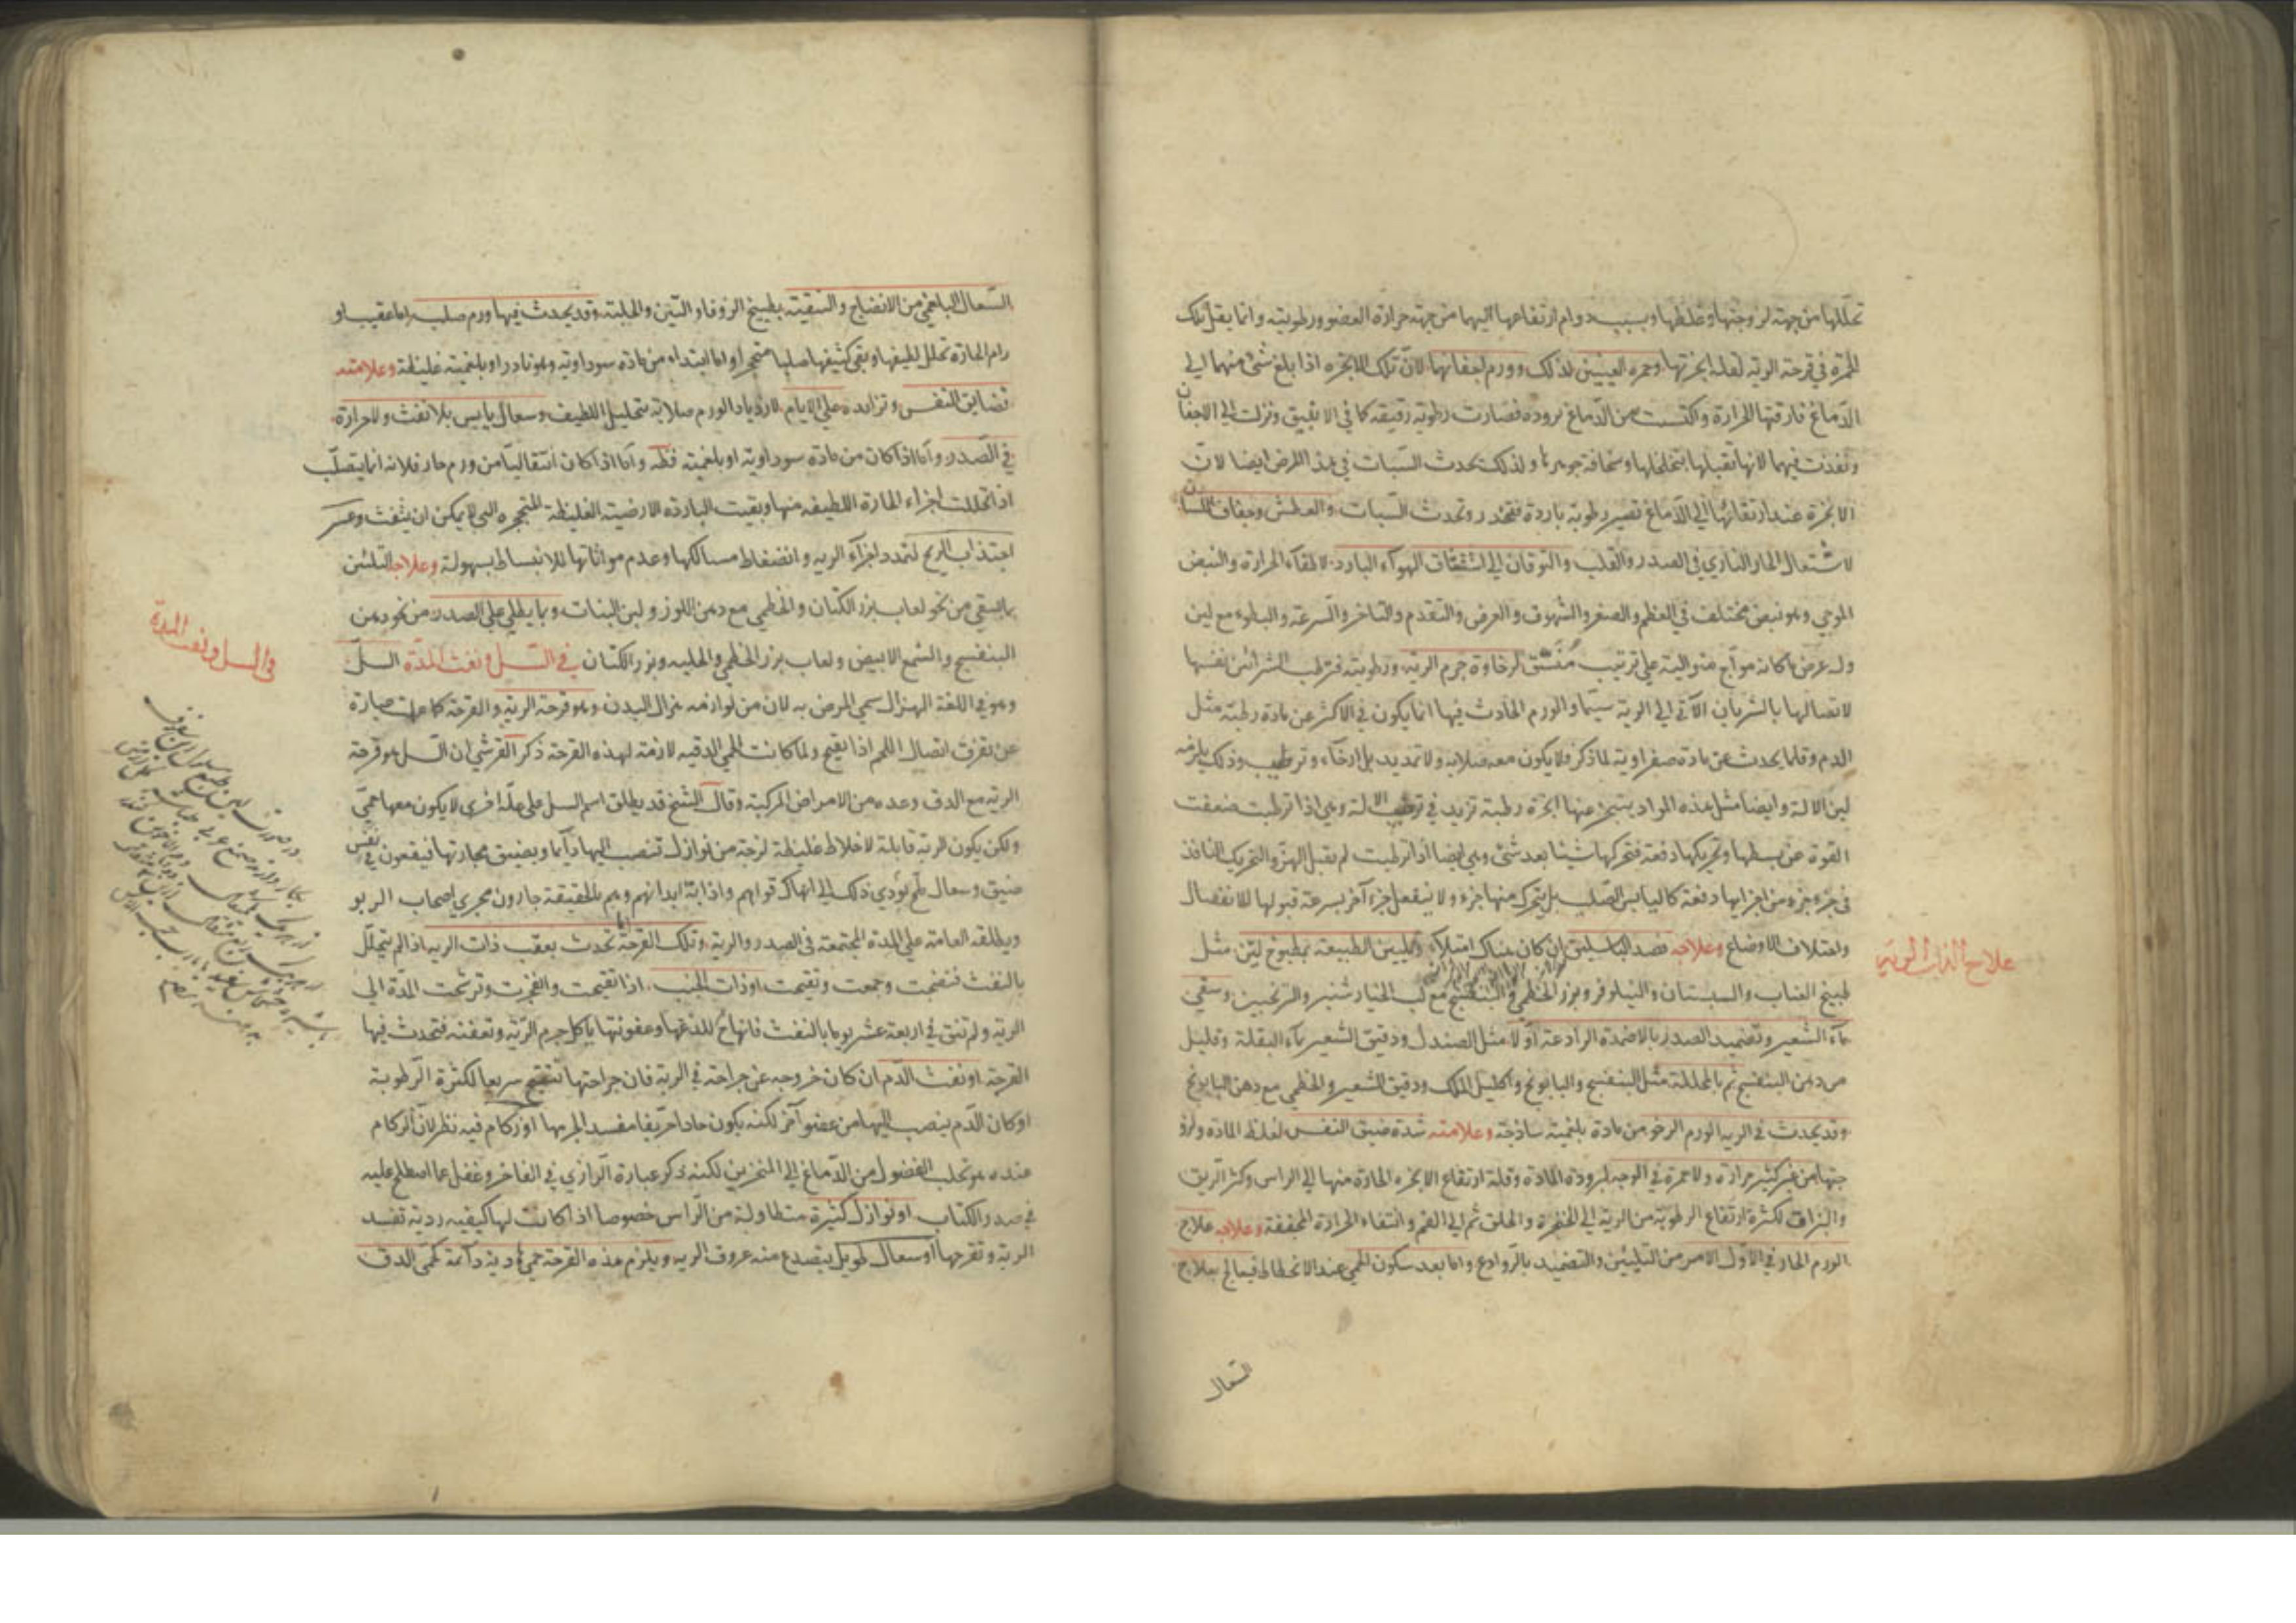 تحللها من جهة لزوجتها وغلظها وبسبب دوام ارتفاعها اليهما من جهة حرارة العضو ورطوبته وانما يقل تلك
الحمرة في قرحة الرية لقلة ابخرتها وحمرة العينين لذلك وورم اجفانهما لان تلك الابخرة اذا بلغ شئ منهما الى
الدماغ فارقتها الحرارة واكتسبت من الدماغ برودة فصارت رطوبة رقيقة كما في الانبيق ونزلت الى الاجفان
ونفذت فيهما لانها تقبلها بتخلخلها وسخافة جوهرها ولذلك يحدث السبات في هذا المرض ايضا لان
الابخرة عند ارتقائها الى الدماغ تصير رطوبة باردة فتخدر وتحدث السبات والعطش وجفاف اللسان
لاشتعال الحار الناري في الصدر والقلب والتوقان الى استنشاق الهواء البارد لاطفاء الحرارة والنبض
الموجي وهو نبض مختلف في العظم والصغر والشهوق والعرض والتقدم والتاخر والسرعة والبطوء مع لين
وله عرض ما كانه مواج متوالية على ترتيب متسق لرخاوة جرم الرية ورطوبته فترطب الشرائين نفسها
لاتصالها بالشريان الآتي الى الرية سيما والورم الحادث فيها انما يكون في الاكثر عن مادة رطبة مثل
الدم وقلما يحدث عن مادة صفراوية لما ذكر ولا يكون معه صلابة ولا تمديد بل ارخاء وترطيب وذلك يلزمه
لين الآلة وايضا مثل هذه المواد يتبخر عنها ابخرة رطبة تزيد في ترطيب الآلة وهي اذا ترطبت ضعفت
القوة عن بسطها وتحريكها دفعة فتحركها شيئا بعد شئ وهي ايضا اذا ترطبت لم تقبل الهز والتحريك النافذ
في جزء جزء من اجزايها دفعة كاليابس الصلب بل يتحرك منها جزء ولا ينفعل جزء آخر بسرعة قبولها للانفصال
واختلاف الاوضاع وعلاجه فصد الباسليق ان كان هناك امتلاء وتليين الطبيعة بمطبوخ لين مثل
طبيخ العناب والسبستان والنيلوفر وبزر الخطمي والبنفسج مع لب الخيار شنبر والترنجبين وسقي
ماء الشعير وتضميد الصدر بالاضمدة الرادعة اولا مثل الصندل ودقيق الشعير بماء البقلة وقليل
من دهن البنفسج ثم بالمحللة مثل البنفسج والبابونج واكليل الملك ودقيق الشعير والخطمي مع دهن البابونج
وقد يحدث في الرية الورم الرخو من مادة بلغمية ساذجة وعلامته شدة ضيق النفس لغلظ المادة ولزو
جتها من غير كثير حرارة ولا حمرة في الوجه لبرودة المادة وقلة ارتفاع الابخرة الحارة منها الى الراس وكثر الريق
والبزاق لكثرة ارتفاع الرطوبة من الرية الى الحنجرة والحلق ثم الى الفم وانتفاء الحرارة المجففة وعلاجه علاج
الورم الحار في الاول الامر من التليين والتضميد بالروادع واما بعد سكون الحمى عند الانحطاط فيعالج بعلاج
السعال
علاج ذات الرية
السعال البلغمي من الانضاج والتنقية بطبيخ الزوفا والتين والحلبة وقد يحدث فيها ورم صلب اما عقيب او
رام الحارة تحلل لطيفها وبقي كثيفها صلبا متحجرا واما ابتداء من مادة سوداوية وهو نادر او بلغمية غليظة وعلامته
تضايق النفس وتزايده على الايام لازدياد الورم صلابة بتحليل اللطيف وسعال يابس بلا نفث ولا حرارة
في الصدر واما اذا كان من مادة سوداوية او بلغمية فظ واما اذا كان انتقاليا من ورم حار فلانه انما يتصلب
اذا تحللت اجزاء الحارة اللطيفة منها وبقيت الباردة الارضية الغليظة المتحجرة التي لا يمكن ان ينفث وعسر
اجتذاب الريح لتمدد اجزاء الرية وانضغاط مسالكها وعدم مواتاتها للانبساط بسهولة وعلاجه التليين
بما يسقى من نحو لعاب بزر الكتان والخطمي مع دهن اللوز ولبن البنات وبما يطلى على الصدر من نحو دهن
البنفسج والشمع الابيض ولعاب بزر الخطمي والحلبة وبزر الكتان في السل ونفث المدة السل
وهو في اللغة الهزال سمي المرض به لان من لوازمه هزال البدن وهو قرحة الرية والقرحة كما علمت عبارة
عن تفرق اتصال اللحم اذا تقيح ولما كانت الحمى الدقية لازمة لهذه القرحة ذكر القرشي ان السل هو قرحة
الرية مع الدق وعده من الامراض المركبة وقال الشيخ قد يطلق اسم السل على علة اخرى لا يكون معها حمى
ولكن يكون الرية قابلة لاخلاط غليظة لزجة من نوازل تنصب اليها دائما ويضيق مجاريها فيقعون في نفس
ضيق وسعال ملح يؤدي ذلك الى انهاك قواهم واذابة ابدانهم وهم بالحقيقة جارون مجرى اصحاب الربو
ويطلقه العامة على المدة المجتمعة في الصدر والرية وتلك القرحة اما تحدث بعقب ذات الرية اذا لم يتحلل
بالنفث فنضجت وجمعت وتقيحت او ذات الجنب اذا تقيحت وانفجرت وترشحت المدة الى
الرية ولم تنق في اربعة عشر يوما بالنفث فانها ح للذعها وعفونتها ياكل جرم الرية وتعفنه فتحدث فيها
القرحة او نفث الدم ان كان خروجه عن جراحة في الرية فان جراحتها تتقيح سريعا لكثرة الرطوبة
او كان الدم ينصب اليها من عضو آخر لكنه يكون حادا حريفا مفسد الجرمها او زكام فيه نظر لان الزكام
عنده هو تحلب الفضول من الدماغ الى المنخرين لكنه ذكر عبارة الرازي في الفاخر وغفل عما اصطلح عليه
في صدر الكتاب او نوازل كثيرة متطاولة من الراس خصوصا اذا كانت لها كيفية ردية تفسد
الرية وتقرحها او سعال طويل يتصدع منه عروق الرية ويلزم هذه القرحة حمى هادية دائمة كحمى الدق
في السل ونفث المدة